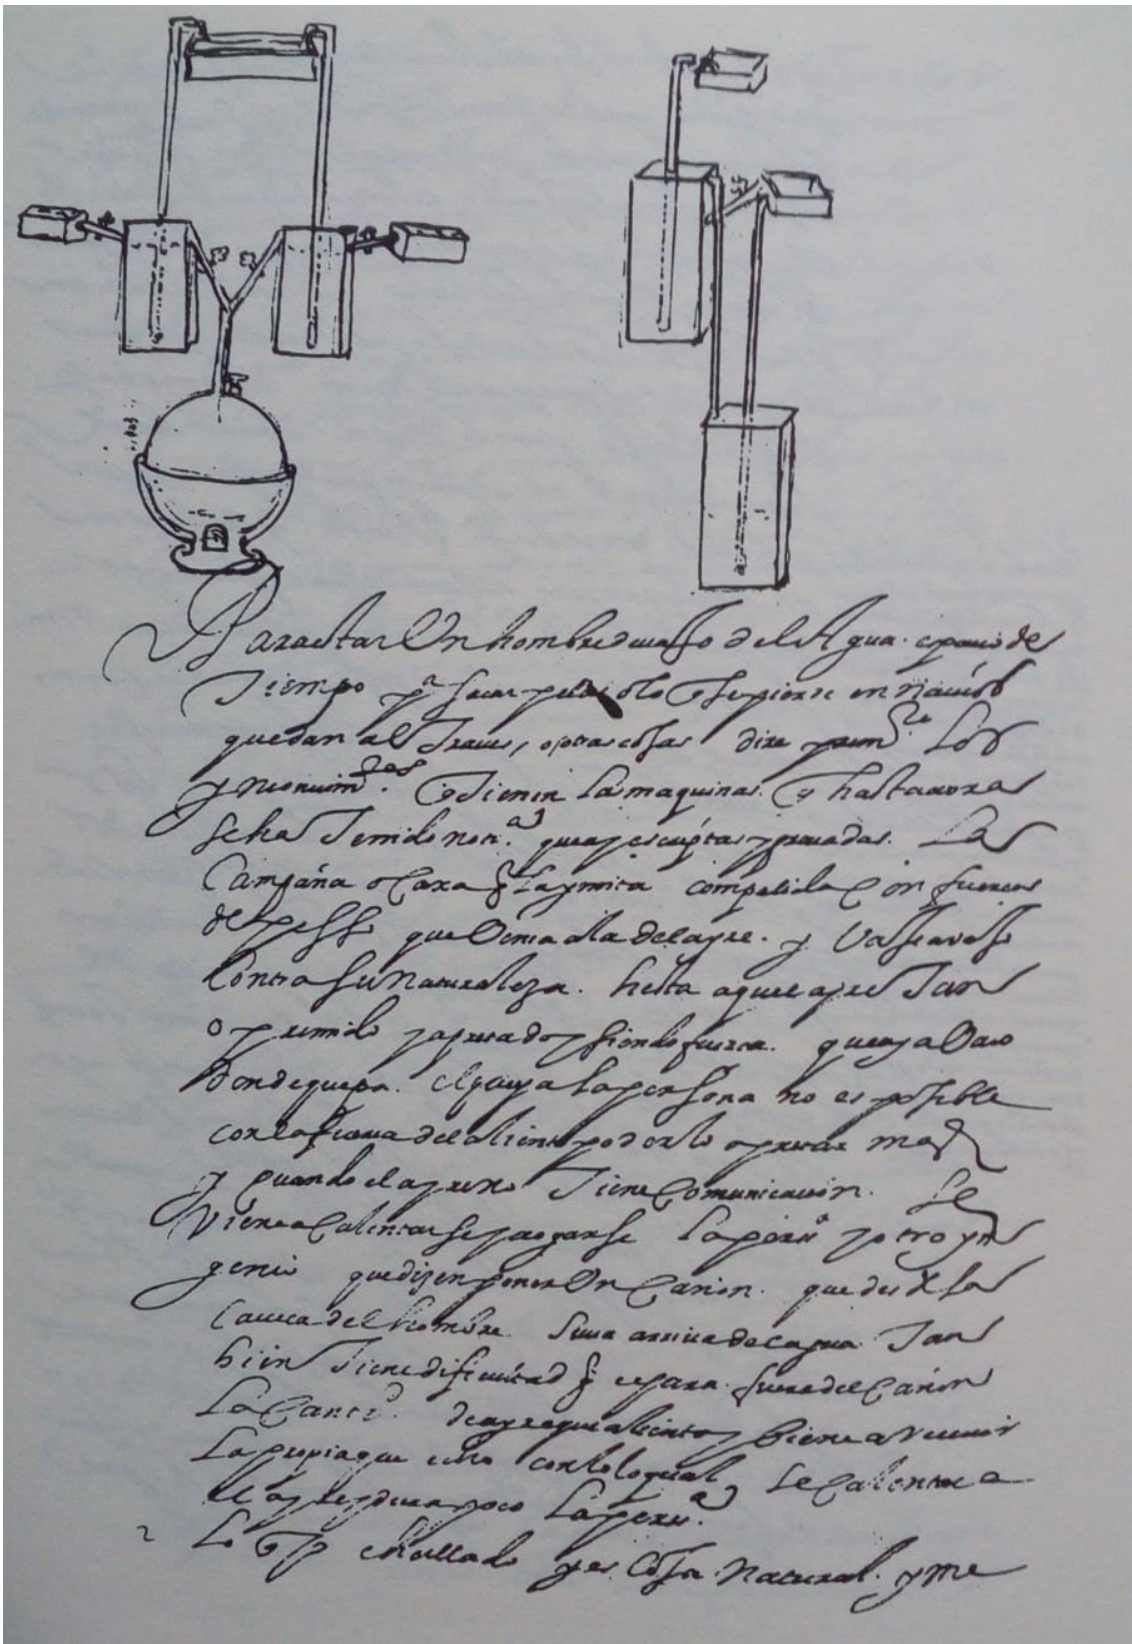 Para estar Un hombre devajo del Agua espacio de
Tiempo pa sacar perlas o lo q se pierde en navios q
quedan al Traves, o otras cosas dire prim.ro Los
yn q Tienen Las maquinas q hasta aora
se ha Tenido not.a que ay escriptas y provadas. La
Campana o Caxa q La ymita compelida con fuerças
de pesso que Vença a la del ayre. y Vaya avaxo
contra su Naturaleza. hasta aqui el ayre Tan
oprimido y apurado siendo fuerça. que aya Vaco
donde quepa. el que aya La persona no es posible
con la fuerça del aliento poderlo apretar mas
y quando el ayre no Tiene Comunicacion. se
Viene a Calentar se y aogarse La pers.a y otro yn
genio que dizen poner Un Cañon. que desde La
Caveça del hombre Suva arriva del agua Tan
bien Tiene dificultad q separa fuera del Cañon
La Cant.d de ayre que alienta y biene a
La propia que echo con lo qual se Calienta
el ayre y dura poco La pers.a
Lo q e hallado y es Cosa Natural. y me